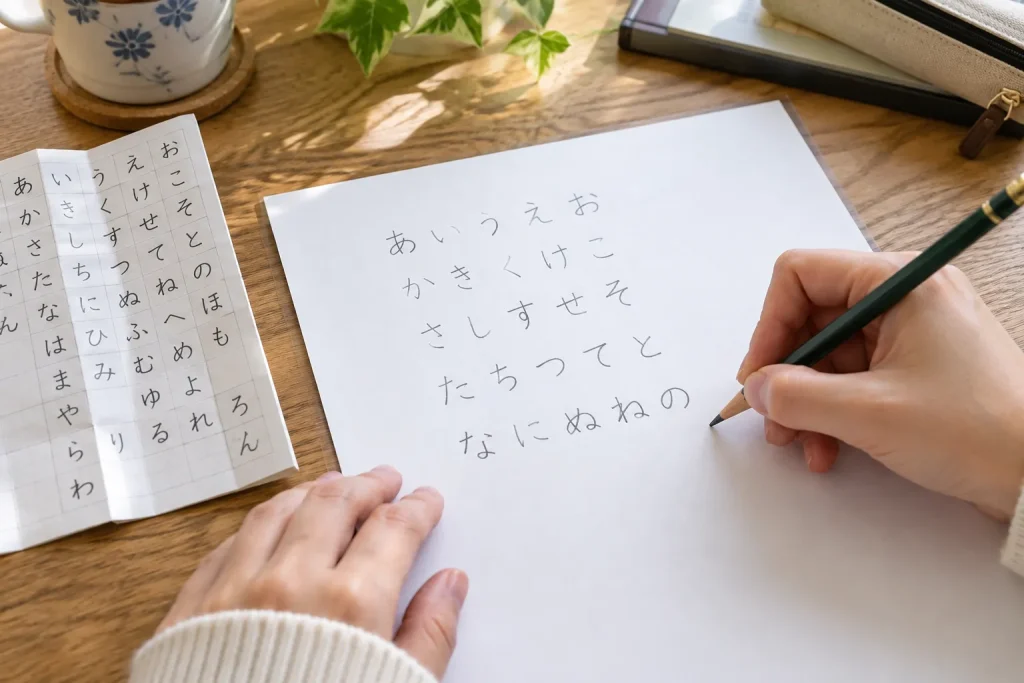 あ い う え お
か き く け こ
さ し す せ そ
た ち つ て と
な に ぬ ね の
は ひ ふ へ ほ
ま み む め も
や ゆ よ
ら り る れ ろ
わ ん
ん
あ い う え お
か き く け こ
さ し す せ そ
た ち つ て と
な に ぬ ね の